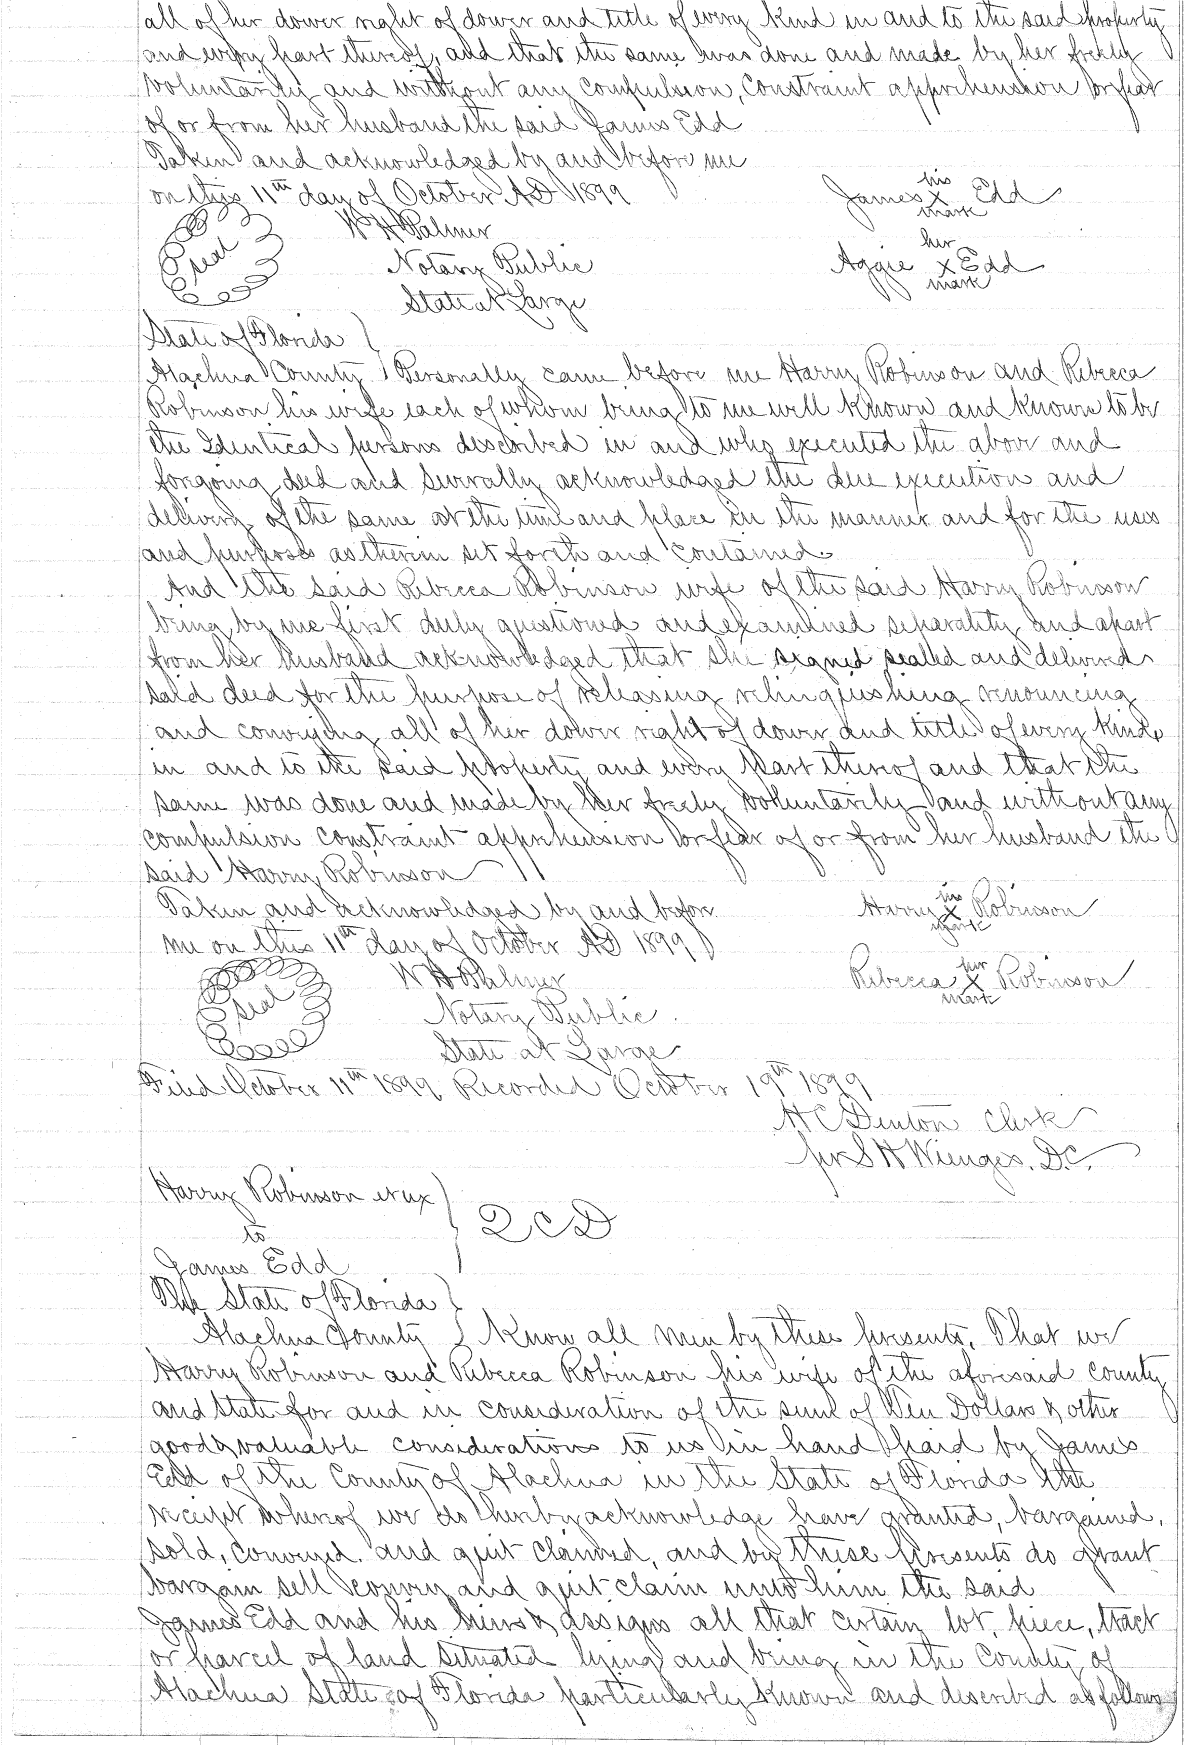 all of her dower right of dower and title of every kind in and to the said property
and every part thereof, and that the same was done and made by her freely
voluntarily and without any compulsion, constraint apprehension or fear
of or from her husband the said James Edd
Taken and acknowledged by and before me
on this 11th day of October AD 1899
James his X mark Edd
seal
W H Palmer
Notary Public
State at Large
Aggie her X mark Edd
State of Florida }
Alachua County } Personally came before me Harry Robinson and Rebecca
Robinson his wife each of whom being to me well known and known to be
the Identical persons described in and who executed the above and
forgoing deed and severally acknowledged the due execution and
delivery of the same at the time and place in the manner and for the uses
and purposes as therein set forth and contained.
And the said Rebecca Robinson wife of the said Harry Robinson
being by me first duly questioned and examined separately and apart
from her husband acknowledged that she signed sealed and delivered
said deed for the purpose of releasing relinquishing renouncing
and conveying all of her dower right of dower and title of every kind,
in and to the said property and every part thereof and that the
same was done and made by her freely voluntarily and without any
compulsion constraint apprehension or fear of or from her husband the
said Harry Robinson
Taken and acknowledged by and before
me on this 11th day of October AD 1899
Harry his X mark Robinson
seal
W H Palmer
Notary Public.
State at Large
Rebecca her X mark Robinson
Filed October 11th 1899, Recorded October 19th 1899
H C Denton Clerk
per S H Wienges, D.C.
Harry Robinson et ux }
to
James Edd
Q C D
The State of Florida }
Alachua County } Know all men by these presents, That we
Harry Robinson and Rebecca Robinson his wife of the aforesaid county
and State for and in consideration of the sum of Ten Dollars & other
good & valuable considerations to us in hand paid by James
Edd of the County of Alachua in the State of Florida the
receipt whereof we do hereby acknowledge have granted, bargained,
sold, conveyed, and quit claimed, and by these presents do grant
bargain sell convey and quit claim unto him the said
James Edd and his heirs & assigns all that certain lot, piece, tract
or parcel of land situated lying and being in the County of
Alachua State of Florida particularly known and described as follows